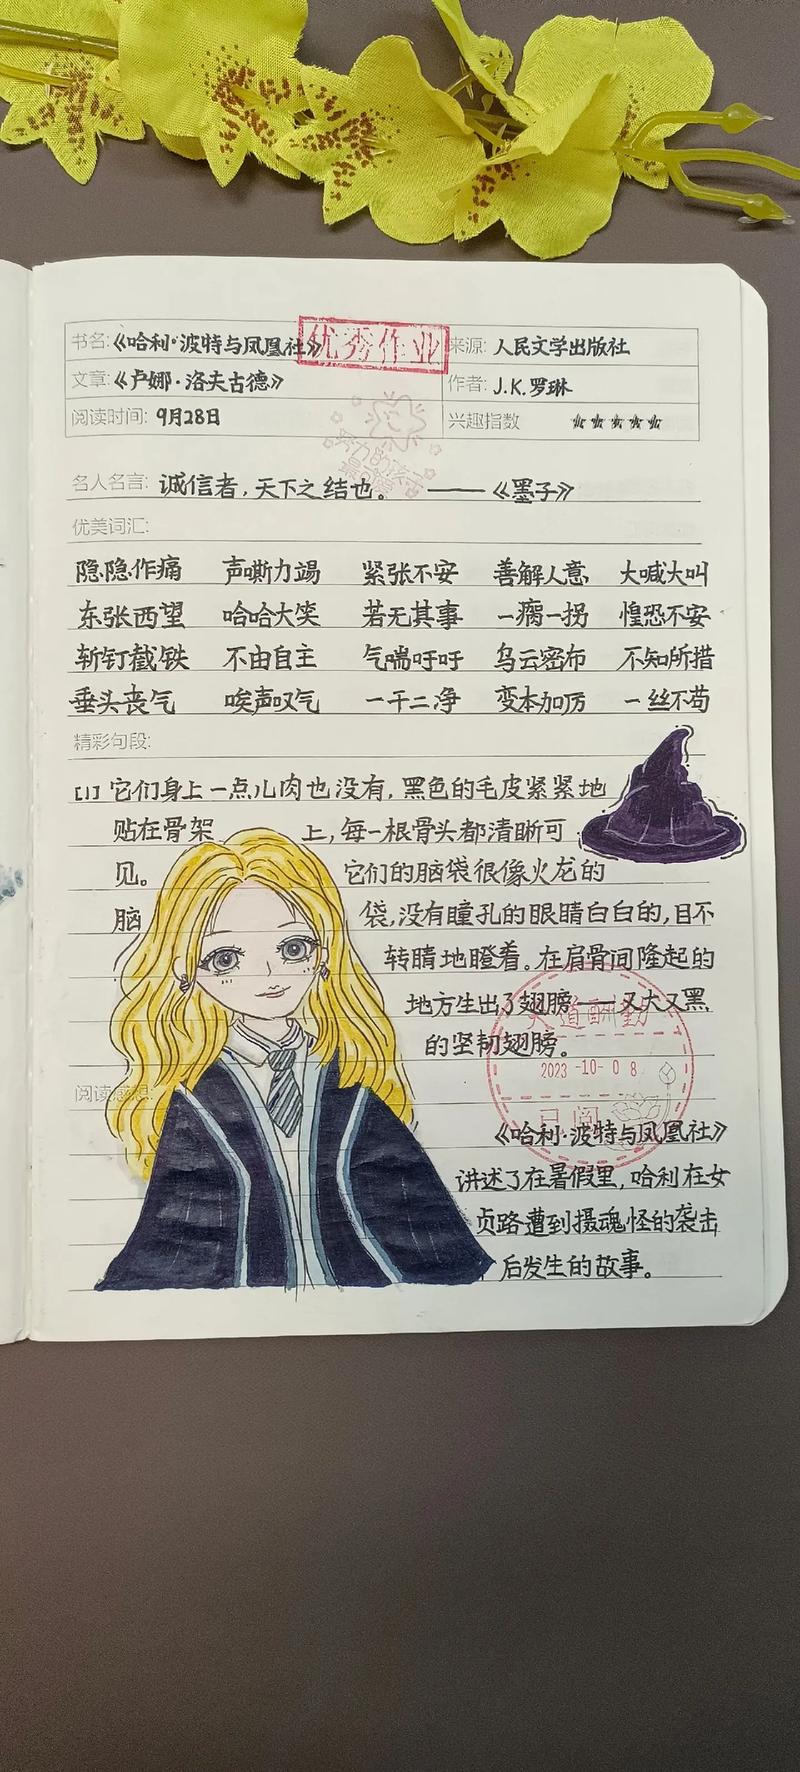 书名:《哈利·波特与凤凰社》 优秀作业 来源: 人民文学出版社
文章:《卢娜·洛夫古德》 作者: J.K.罗琳
阅读时间: 9月28日 兴趣指数 ★★★★★
努力的孩子
最可爱
名人名言: 诚信者,天下之结也。 ——《墨子》
优美词汇:
隐隐作痛 声嘶力竭 紧张不安 善解人意 大喊大叫
东张西望 哈哈大笑 若无其事 一瘸一拐 惶恐不安
斩钉截铁 不由自主 气喘吁吁 乌云密布 不知所措
垂头丧气 唉声叹气 一干二净 变本加厉 一丝不苟
精彩句段:
[1] 它们身上一点儿肉也没有,黑色的毛皮紧紧地
贴在骨架上,每一根骨头都清晰可
见。它们的脑袋很像火龙的
脑袋,没有瞳孔的眼睛白白的,目不
转睛地瞪着。在肩骨间隆起的
地方生出了翅膀——又大又黑
的坚韧翅膀。
天道酬勤
2023-10-08
已阅
阅读感想:
《哈利·波特与凤凰社》
讲述了在暑假里,哈利在女
贞路遭到摄魂怪的袭击
后发生的故事。